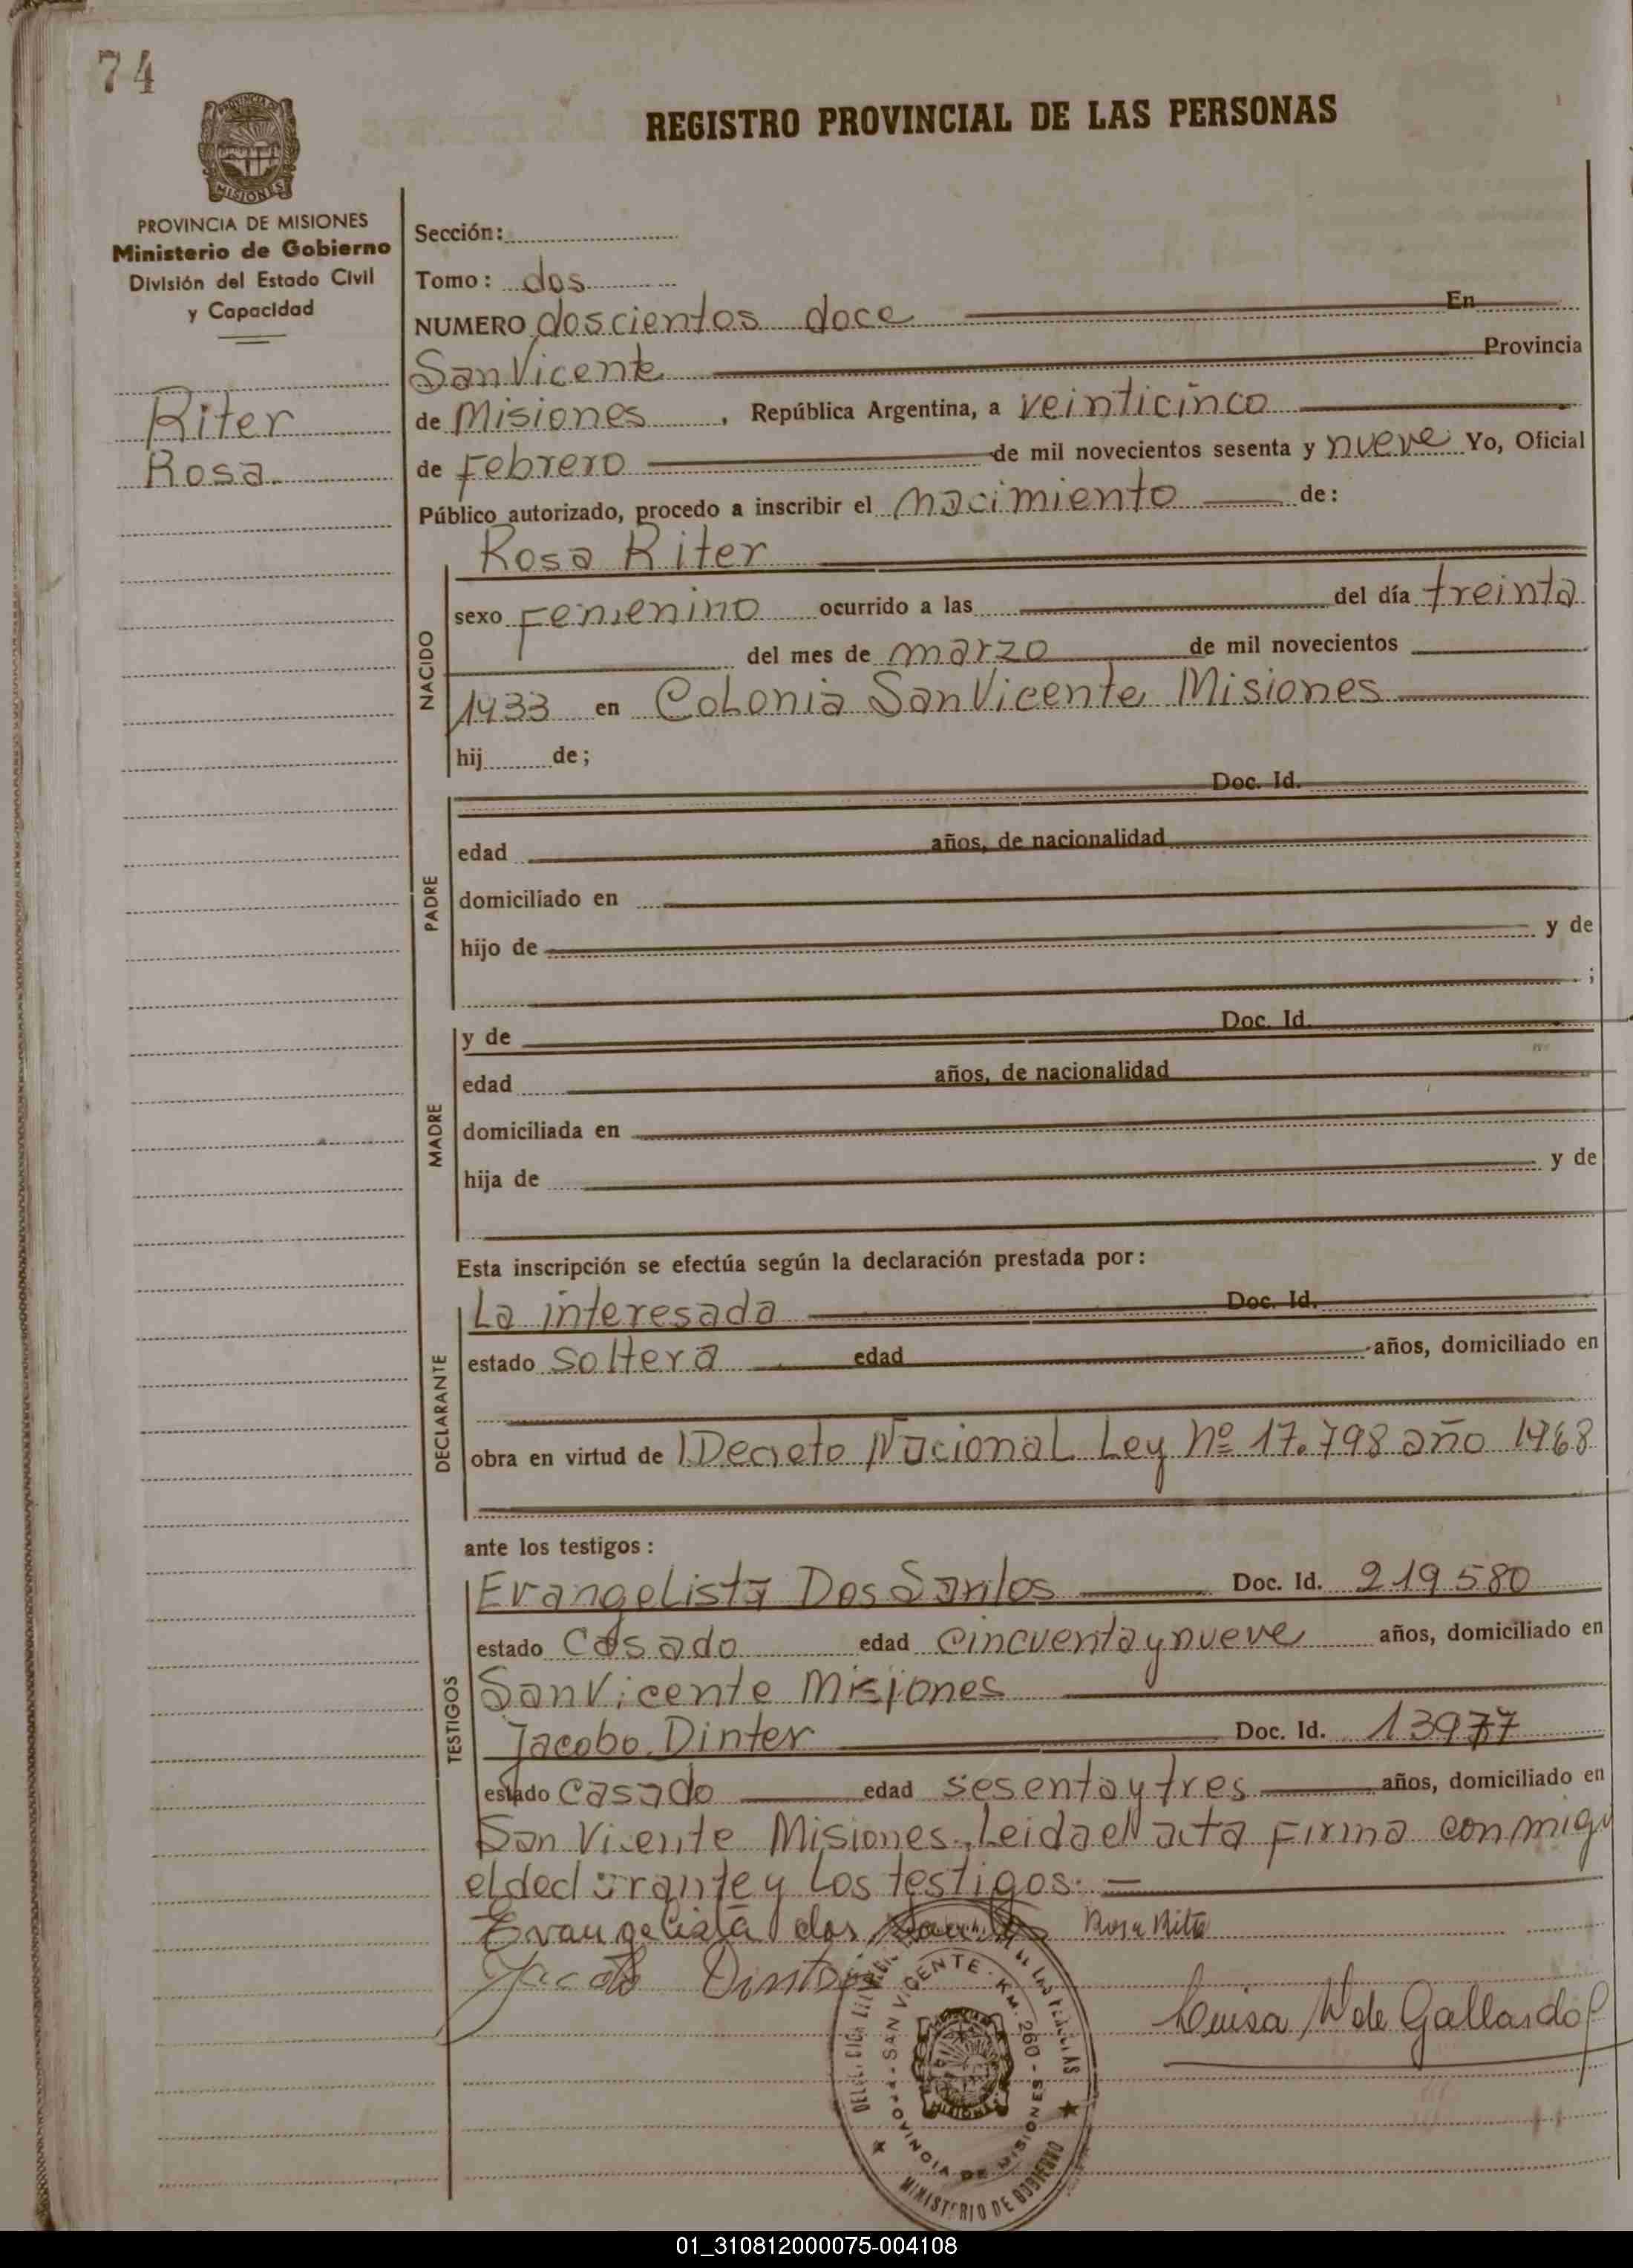 74
REGISTRO PROVINCIAL DE LAS PERSONAS
PROVINCIA DE MISIONES
Ministerio de Gobierno
División del Estado Civil
y Capacidad
Riter
Rosa.
Sección:
Tomo: dos
NUMERO doscientos doce En
San Vicente Provincia
de Misiones, República Argentina, a veinticinco
de Febrero de mil novecientos sesenta y nueve Yo, Oficial
Público autorizado, procedo a inscribir el nacimiento de:
NACIDO
Rosa Riter
sexo Femenino ocurrido a las del día treinta
del mes de marzo de mil novecientos
1933 en Colonia San Vicente Misiones
hij de;
PADRE
Doc. Id.
edad años, de nacionalidad
domiciliado en
hijo de y de
;
MADRE
y de Doc. Id.
edad años, de nacionalidad
domiciliada en
hija de y de
Esta inscripción se efectúa según la declaración prestada por:
DECLARANTE
La interesada Doc. Id.
estado soltera edad años, domiciliado en
obra en virtud de Decreto Nacional Ley Nº 17.798 año 1968
ante los testigos:
TESTIGOS
Evangelista Dos Santos Doc. Id. 219580
estado Casado edad cincuenta y nueve años, domiciliado en
San Vicente Misiones
Jacobo Dinter Doc. Id. 13977
estado Casado edad sesenta y tres años, domiciliado en
San Vicente Misiones. Leida el acta Firma conmigo
el declarante y Los testigos.
Evangelista dos Rosa Rita
Jacobo Dinter
Luisa de Gallardo
SAN VICENTE - KM. 260 - MISIONES
PROVINCIA DE MISIONES
MINISTERIO DE GOBIERNO
MISIONES
01_310812000075-004108